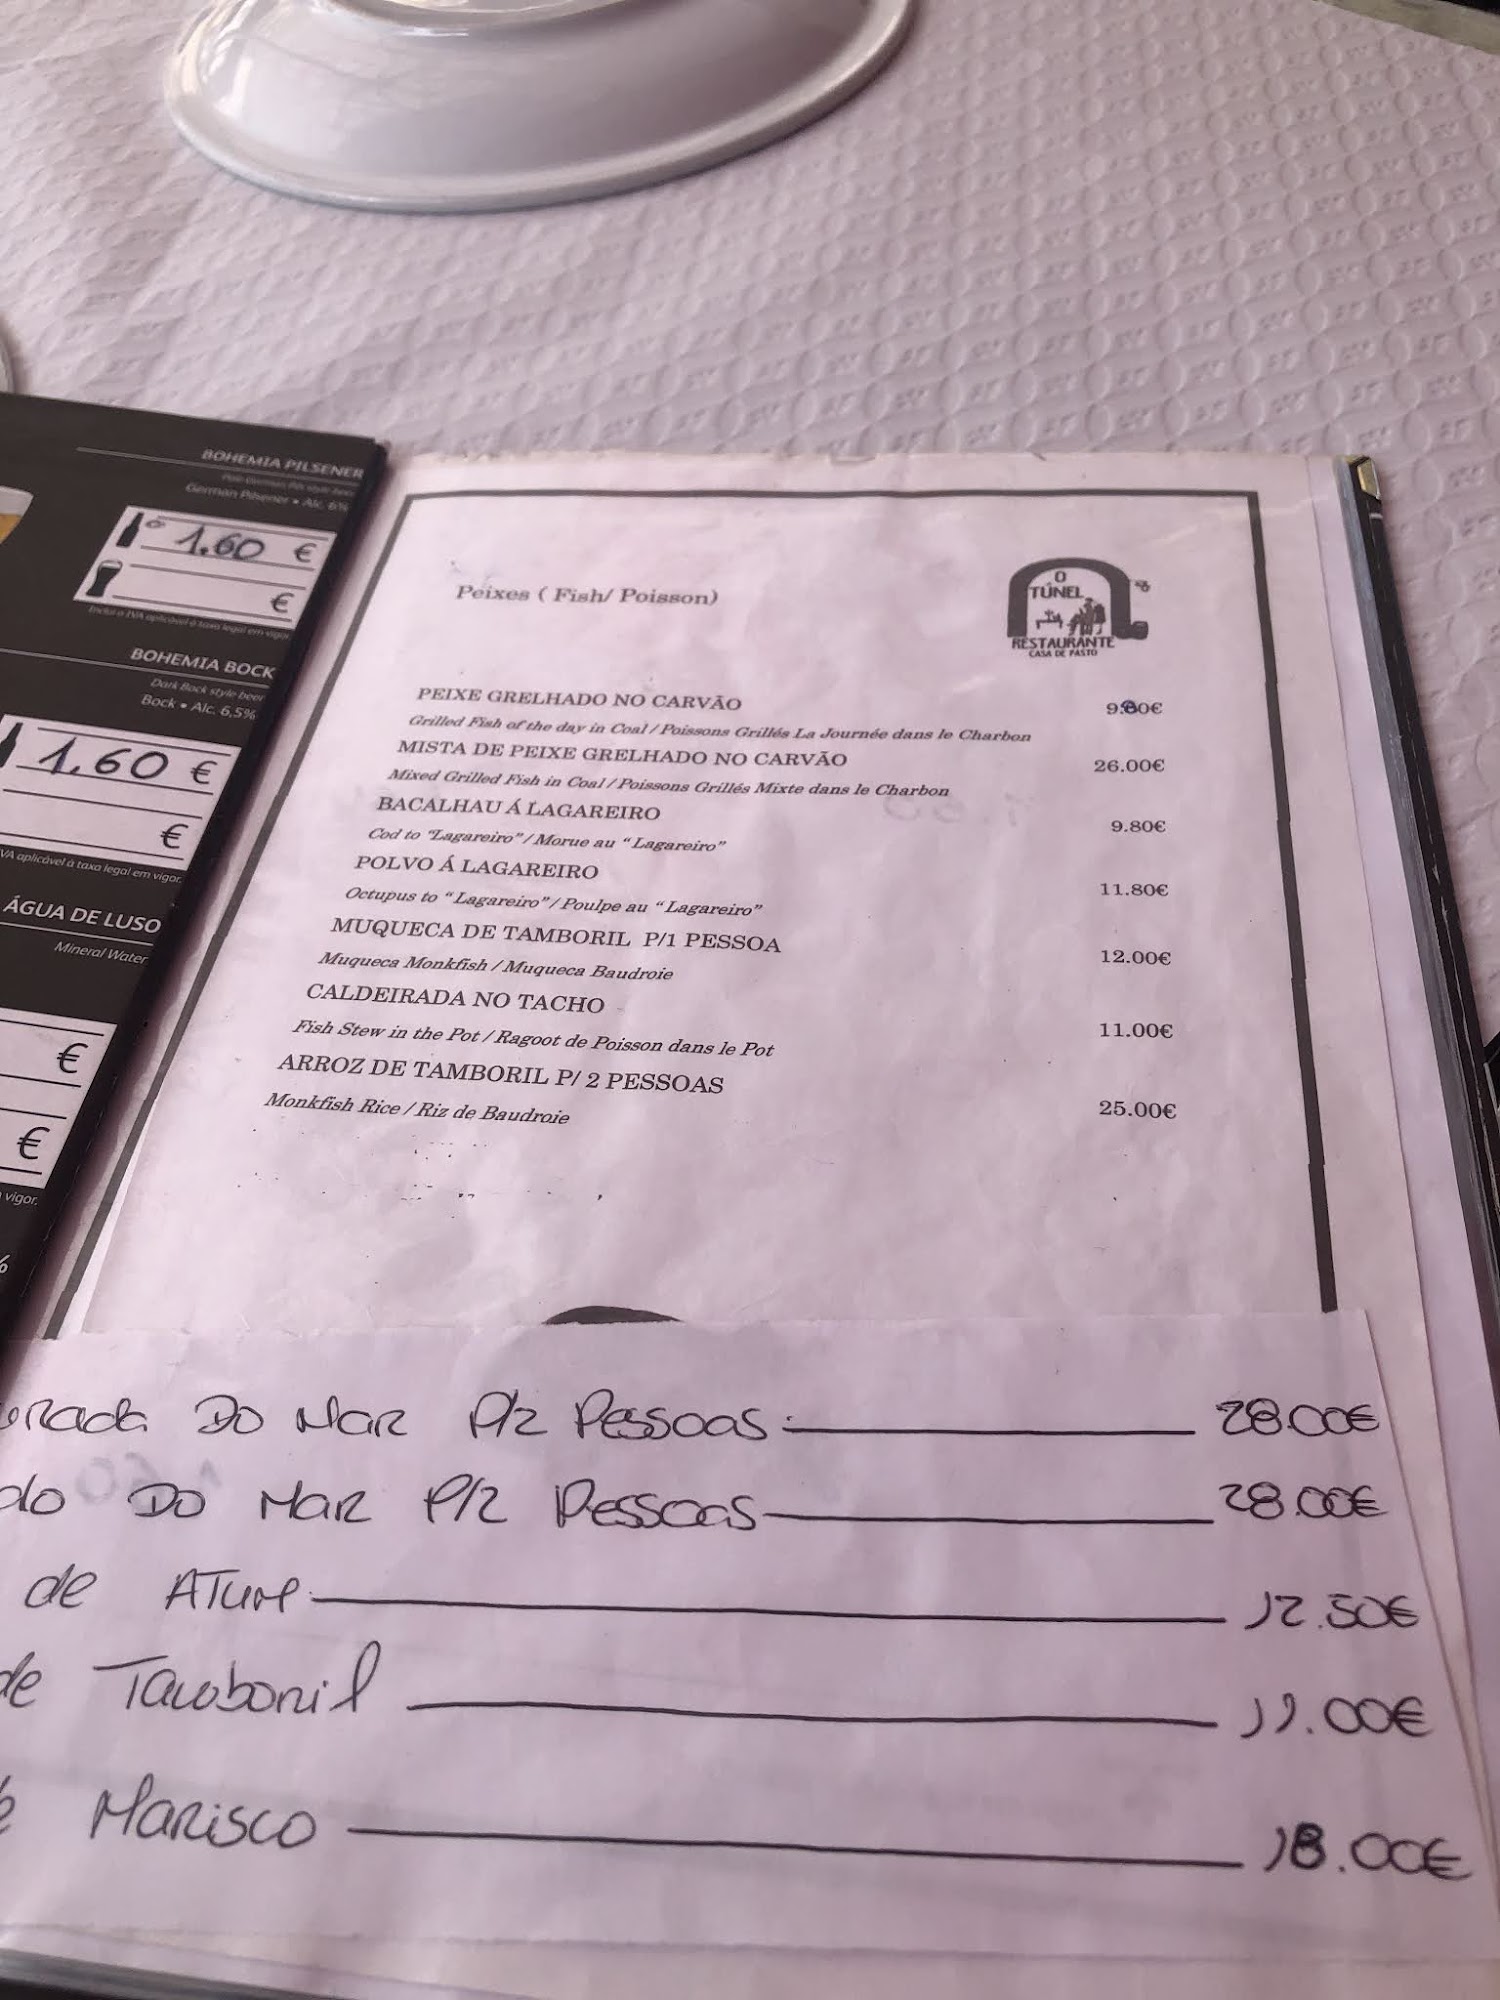 BOHEMIA PILSENER
German Pilsener • Alc. 6%
1.60 €
€
Inclui o IVA aplicável à taxa legal em vigor.
BOHEMIA BOCK
Dark Bock style beer
Bock • Alc. 6,5%
1.60 €
€
VA aplicável à taxa legal em vigor.
ÁGUA DE LUSO
Mineral Water
€
€
vigor.
%
Peixes ( Fish/ Poisson)
O
TÚNEL
RESTAURANTE
CASA DE PASTO
PEIXE GRELHADO NO CARVÃO 9.80€
Grilled Fish of the day in Coal / Poissons Grillés La Journée dans le Charbon
MISTA DE PEIXE GRELHADO NO CARVÃO 26.00€
Mixed Grilled Fish in Coal / Poissons Grillés Mixte dans le Charbon
BACALHAU Á LAGAREIRO 9.80€
Cod to "Lagareiro" / Morue au "Lagareiro"
POLVO Á LAGAREIRO 11.80€
Octupus to "Lagareiro" / Poulpe au "Lagareiro"
MUQUECA DE TAMBORIL P/1 PESSOA 12.00€
Muqueca Monkfish / Muqueca Baudroie
CALDEIRADA NO TACHO 11.00€
Fish Stew in the Pot / Ragoot de Poisson dans le Pot
ARROZ DE TAMBORIL P/ 2 PESSOAS 25.00€
Monkfish Rice / Riz de Baudroie
DO MAR P/2 PESSOAS 28.00€
do DO MAR P/2 PESSOAS 28.00€
de ATUM 12.50€
de Tamboril 11.00€
MARISCO 18.00€